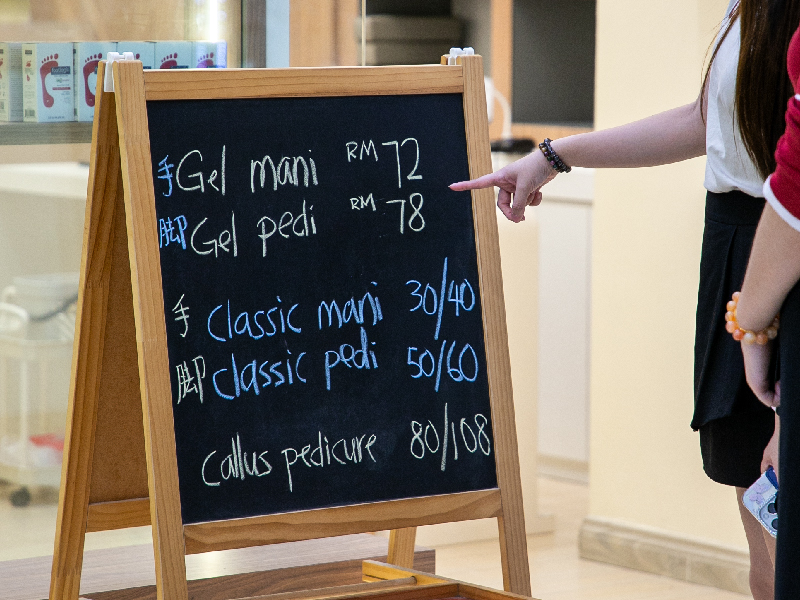 手 Gel mani RM 72
脚 Gel pedi RM 78
手 classic mani 30/40
脚 classic pedi 50/60
callus pedicure 80/108